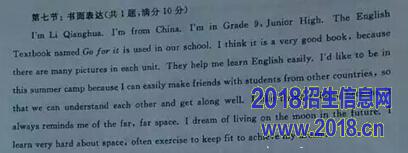 第七节：书面表达(共1题,满分10分)
I'm Li Qianghua. I'm from China. I'm in Grade 9, Junior High. The English
Textbook named Go for it is used in our school. I think it is a very good book, because
there are many pictures in each unit. They help me learn English easily. I'd like to be in
this summer camp because I can easily make friends with students from other countries, so
that we can understand each other and get along well.
always reminds me of the far, far space. I dream of living on the moon in the future. I
learn very hard about space, often exercise to keep fit to achieve my
2018招生信息网
www.2018.cn